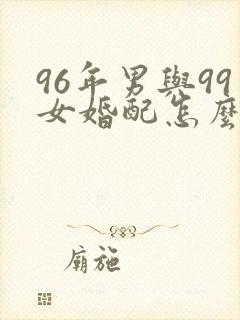 96年男與99
女婚配怎麼
廟施